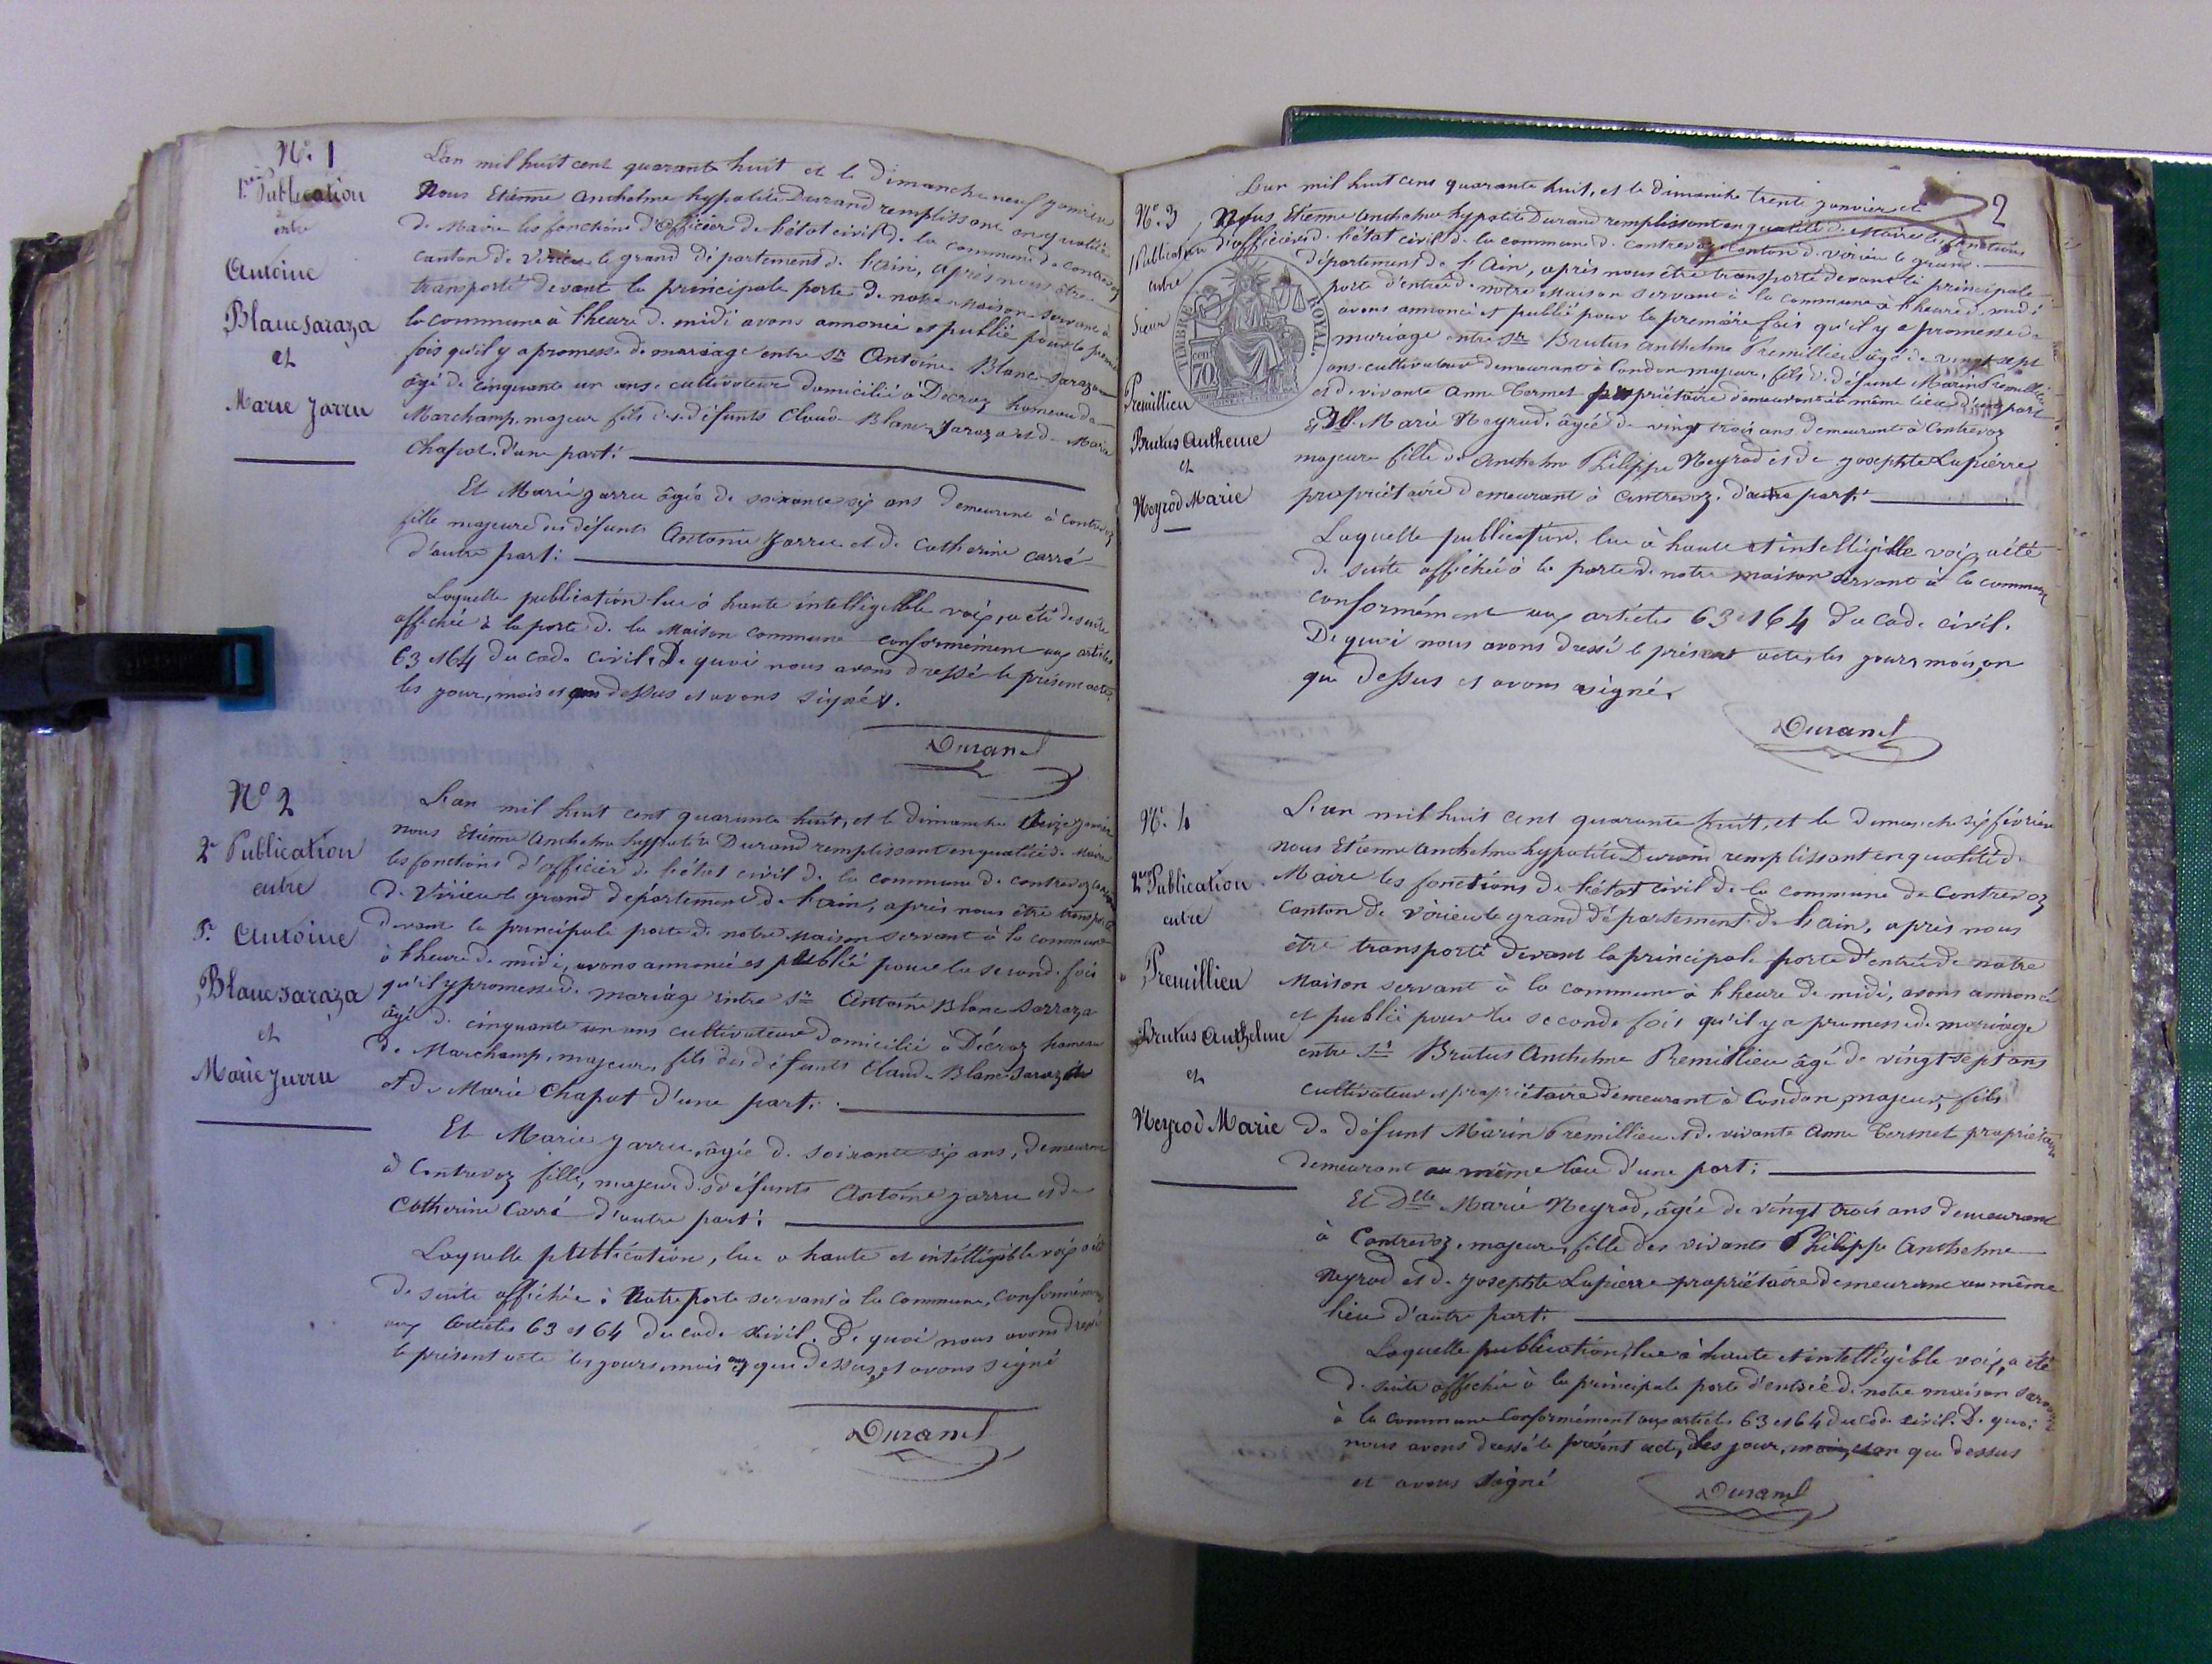 N°. 1
1re Publication
entre
Antoine
Blanc Saraza
et
Marie Jarru
L'an mil huit cent quarante huit et le dimanche neuf janvier
Nous Etienne Anthelme hypolite Durand remplissant en qualité
de Maire les fonctions d'Officier de l'état civil de la commune de Contrevoz
canton de Virieu le grand département de l'ain, après nous être
transporté devant la principale porte de notre Maison servant à
la commune à l'heure de midi avons annoncé et publié pour la première
fois qu'il y a promesse de mariage entre Sr Antoine Blanc-Saraza
âgé de cinquante un ans cultivateur domicilié à Décroz hameau de
Marchamp, majeur fils des défunts Claude Blanc-Saraza et de Marie
Chapot, d'une part:
Et Marie Jarru âgée de soixante six ans demeurant à Contrevoz
fille majeure des défunts Antoine Jarru et de Catherine Carré
d'autre part:
Laquelle publication lue à haute intelligible voix, a été de suite
affichée à la porte de la Maison commune conformément aux articles
63 et 64 du code civil. De quoi nous avons dressé le présent acte,
les jour, mois et an dessus et avons signé.
Durand
N° 2
2e Publication
entre
Sr. Antoine
Blanc Saraza
et
Marie Jurru
L'an mil huit cent quarante huit, et le dimanche seize janvier
nous Etienne Anthelme hyppolite Durand remplissant en qualité de Maire
les fonctions d'officier de l'état civil de la commune de contrevoz canton
de Virieu le grand département de l'ain, après nous être transporté
devant la principale porte de notre Maison servant à la commune
à l'heure de midi, avons annoncé et publié pour la seconde fois
qu'il y promesse de mariage entre Sr Antoine Blanc Sarraza
âgé de cinquante un ans cultivateur domicilié à Décroz hameau
de Marchamp, majeur, fils des défunts Claude Blanc Saraza
et de Marie Chapot d'une part:
Et Marie Jarru, âgée de soixante six ans, demeurant
à Contrevoz fille, majeur des défunts Antoine Jarru et de
Catherine Carré d'autre part:
Laquelle publication, lue a haute et intelligible voix a été
de suite affichée à Notre porte servant à la commune, conformément
aux articles 63 et 64 du code civil. De quoi nous avons dressé
le présent acte les jours, mois an que dessus, et avons signé
Durand
2
N°. 3
1re Publication
entre
Sieur
Premillieu
Brutus Anthelme
et
Neyrod Marie
TIMBRE ROYAL
70 cen
L'an mil huit cens quarante huit, et le dimanche trente janvier et
Nous Etienne Anthelme hypolite Durand remplissant en qualité de Maire les fonctions
d'officier de l'état civil de la commune de contrevoz canton de virieu le grand
département de l'Ain, après nous être transporté devant la principale
porte d'entrée de notre Maison servant à la commune à l'heure de midi
avons annoncé et publié pour la première fois qu'il y a promesse de
mariage entre Sr Brutus anthelme Premillieu âgé de vingt sept
ans cultivateur demeurant à Condon majeur, fils de défunt Marin Premillieu
et de vivante Anne Termet propriétaire demeurant au même lieu d'une part
Et Dlle Marie Neyrod, âgée de vingt trois ans demeurant à Contrevoz
majeure fille de Anthelme Philippe Neyrod et de Josephte Lapierre
propriétaire demeurant à Contrevoz, d'autre part:
Laquelle publication lue à haute et intelligible voix a été
de suite affichée à la porte de notre maison servant à la commune
conformément aux articles 63 et 64 du code civil.
De quoi nous avons dressé le présent acte, les jours, mois, an
que dessus et avons signé.
Durand
N°. 4
2me Publication
entre
Premillieu
Brutus Anthelme
et
Neyrod Marie
L'an mil huit cent quarante huit, et le dimanche six février
nous Etienne anthelme hypolite Durand remplissant en qualité de
Maire les fonctions de l'état civil de la commune de Contrevoz
canton de virieu le grand département de l'ain, après nous
être transporté devant la principale porte d'entrée de notre
Maison servant à la commune à l'heure de midi, avons annoncé
et publié pour la seconde fois qu'il y a promesse de mariage
entre Sr Brutus Anthelme Premillieu âgé de vingt sept ans
cultivateur et propriétaire demeurant à Condon, majeur, fils
de défunt Marin Premillieu et de vivante Anne Termet propriétaire
demeurant au même lieu d'une part:
Et Dlle Marie Neyrod, âgée de vingt trois ans demeurant
à Contrevoz, majeure, fille des vivants Philippe Anthelme
Neyrod et de Josephte Lapierre propriétaire demeurant au même
lieu d'autre part:
Laquelle publication, lue à haute et intelligible voix, a été
de suite affichée à la principale porte d'entrée de notre maison servant
à la commune conformément aux articles 63 et 64 du code civil. De quoi
nous avons dressé le présent acte, les jour, mois, et an que dessus
et avons signé
Durand